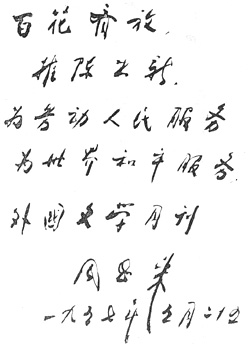 百花齐放.
推陈出新.
为劳动人民服务
为世界和平服务.
外国文学月刊
周恩来
一九五七年 月二十